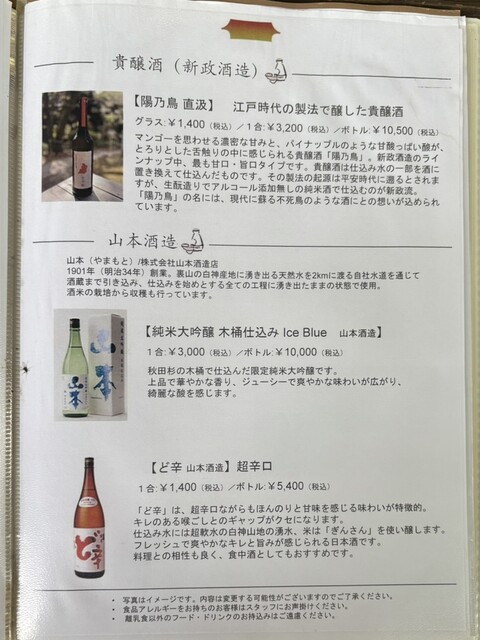 貴醸酒（新政酒造）
【陽乃鳥 直汲】 江戸時代の製法で醸した貴醸酒
グラス:￥1,400（税込）／1合:￥3,200（税込）／ボトル:￥10,500（税込）
マンゴーを思わせる濃密な甘みと、パイナップルのような甘酸っぱい酸が、
とろりとした舌触りの中に感じられる貴醸酒「陽乃鳥」。新政酒造のライ
ンナップ中、最も甘口・旨口タイプです。貴醸酒は仕込み水の一部を酒に
置き換えて仕込んだものです。その製法の起源は平安時代に遡るとされま
すが、生酛造りでアルコール添加無しの純米酒で仕込むのが新政流。
「陽乃鳥」の名には、現代に蘇る不死鳥のような酒にとの想いが込められ
ています。
山本酒造
山本（やまもと）/株式会社山本酒造店
1901年（明治34年）創業。裏山の白神産地に湧き出る天然水を2kmに渡る自社水道を通じて
酒蔵まで引き込み、仕込みを始めとする全ての工程に湧き出たままの状態で使用。
酒米の栽培から収穫も行っています。
【純米大吟醸 木桶仕込み Ice Blue 山本酒造】
1合:￥3,000（税込）／ボトル:￥10,000（税込）
秋田杉の木桶で仕込んだ限定純米大吟醸です。
上品で華やかな香り、ジューシーで爽やかな味わいが広がり、
綺麗な酸を感じます。
山本
山本
【ど辛 山本酒造】超辛口
1合:￥1,400（税込）／ボトル:￥5,400（税込）
「ど辛」は、超辛口ながらもほんのりと甘味を感じる味わいが特徴的。
キレのある喉ごしとのギャップがクセになります。
仕込み水には超軟水の白神山地の湧水、米は「ぎんさん」を使い醸します。
フレッシュで爽やかなキレと旨みが感じられる日本酒です。
料理との相性も良く、食中酒としてもおすすめです。
ど辛
• 写真はイメージです。内容は変更する可能性がございますのでご了承ください。
• 食品アレルギーをお持ちのお客様はスタッフにお声掛けください。
• 離乳食以外のフード・ドリンクのお持込みはご遠慮ください。